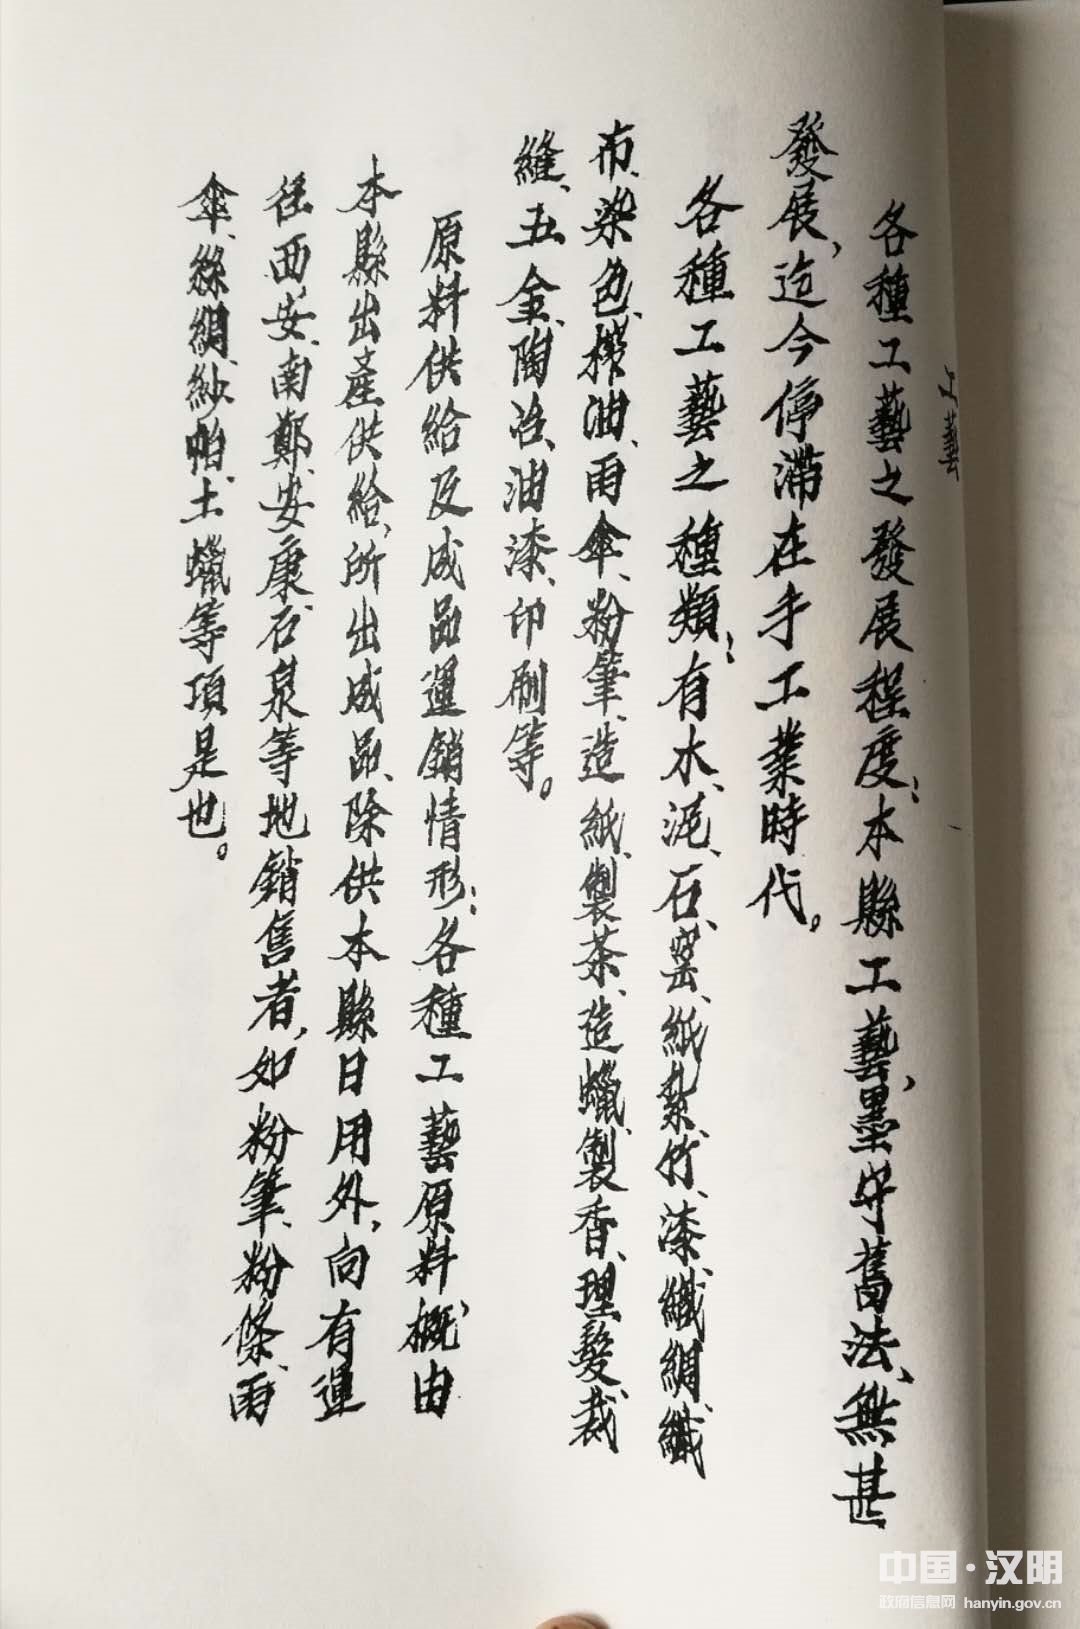 工藝
各種工藝之發展程度：本縣工藝，墨守舊法、無甚
發展，迄今停滯在手工業時代。
各種工藝之種類：有水、泥、石、窰、紙紮、竹、漆、織綢、織
布、染色、榨油、雨傘、粉筆、造紙、製茶、造蠟、製香、理髮、裁
縫、五金、陶冶、油漆、印刷等。
原料供給及成品運銷情形：各種工藝原料，概由
本縣出產供給，所出成品、除供本縣日用外，向有運
往西安、南鄭、安康、石泉等地銷售者，如粉筆、粉條、雨
傘、絲綢、紗帕、土蠟等項是也。
中国·汉阴
政府信息网 hanyin.gov.cn